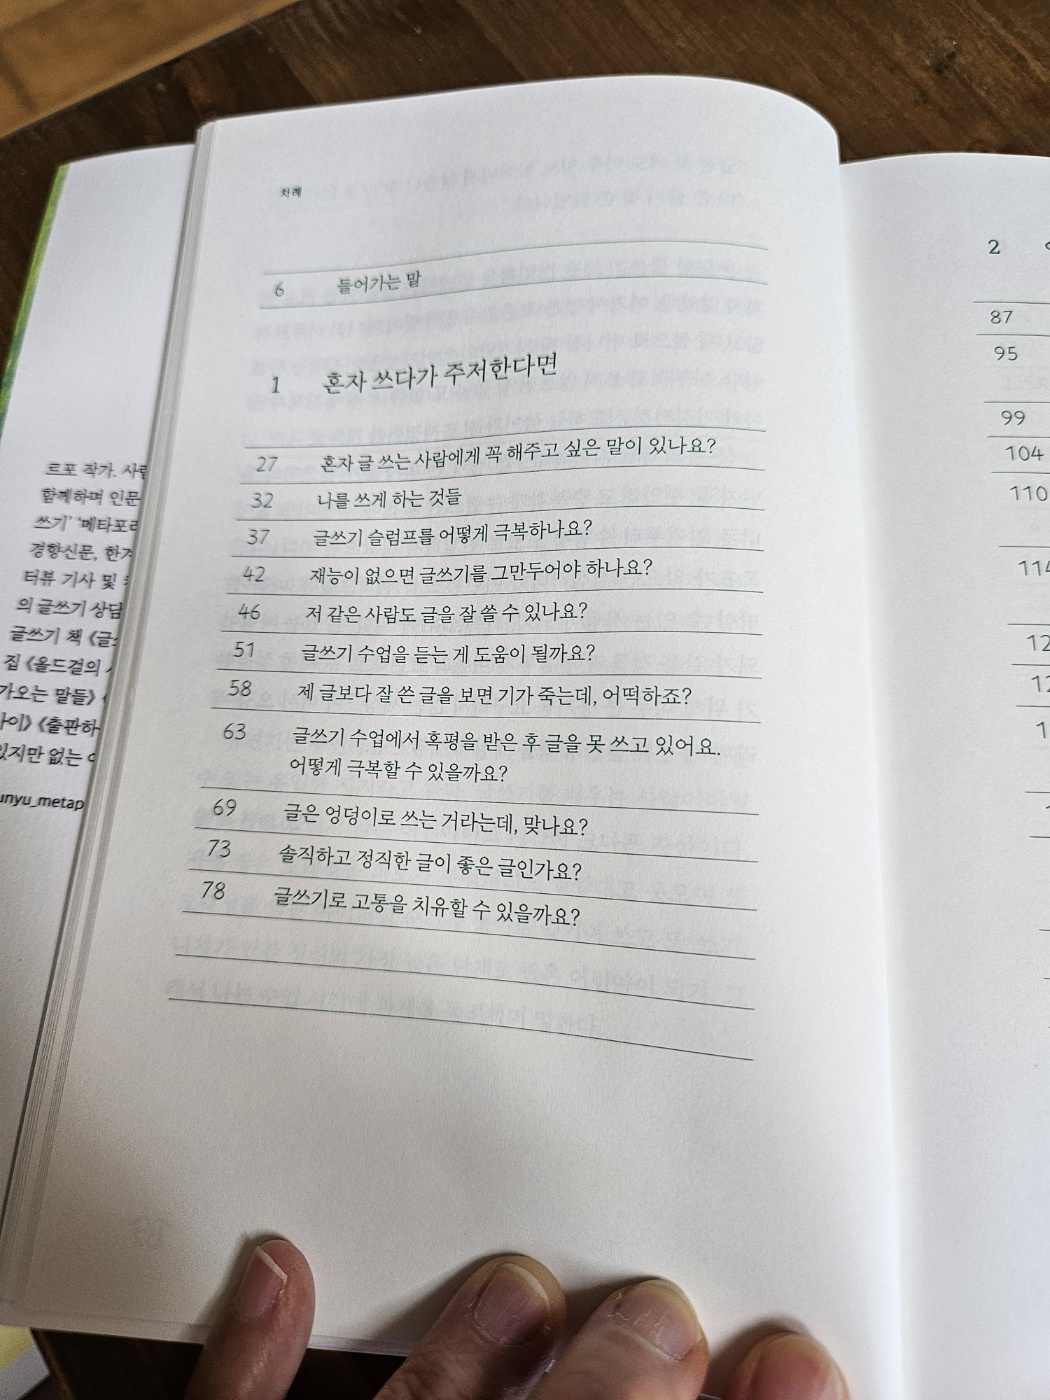 르포 작가.
함께하며 인문
쓰기’ ‘메타포라
경향신문, 한겨
터뷰 기사 및
의 글쓰기 상담
글쓰기 책 《글
집 《올드걸의
가오는 말들》
《출판하
있지만 없는
unyu_metap
차례
6 들어가는 말
1 혼자 쓰다가 주저한다면
27 혼자 글 쓰는 사람에게 꼭 해주고 싶은 말이 있나요?
32 나를 쓰게 하는 것들
37 글쓰기 슬럼프를 어떻게 극복하나요?
42 재능이 없으면 글쓰기를 그만두어야 하나요?
46 저 같은 사람도 글을 잘 쓸 수 있나요?
51 글쓰기 수업을 듣는 게 도움이 될까요?
58 제 글보다 잘 쓴 글을 보면 기가 죽는데, 어떡하죠?
63 글쓰기 수업에서 혹평을 받은 후 글을 못 쓰고 있어요.
어떻게 극복할 수 있을까요?
69 글은 엉덩이로 쓰는 거라는데, 맞나요?
73 솔직하고 정직한 글이 좋은 글인가요?
78 글쓰기로 고통을 치유할 수 있을까요?
2
87
95
99
104
110
114